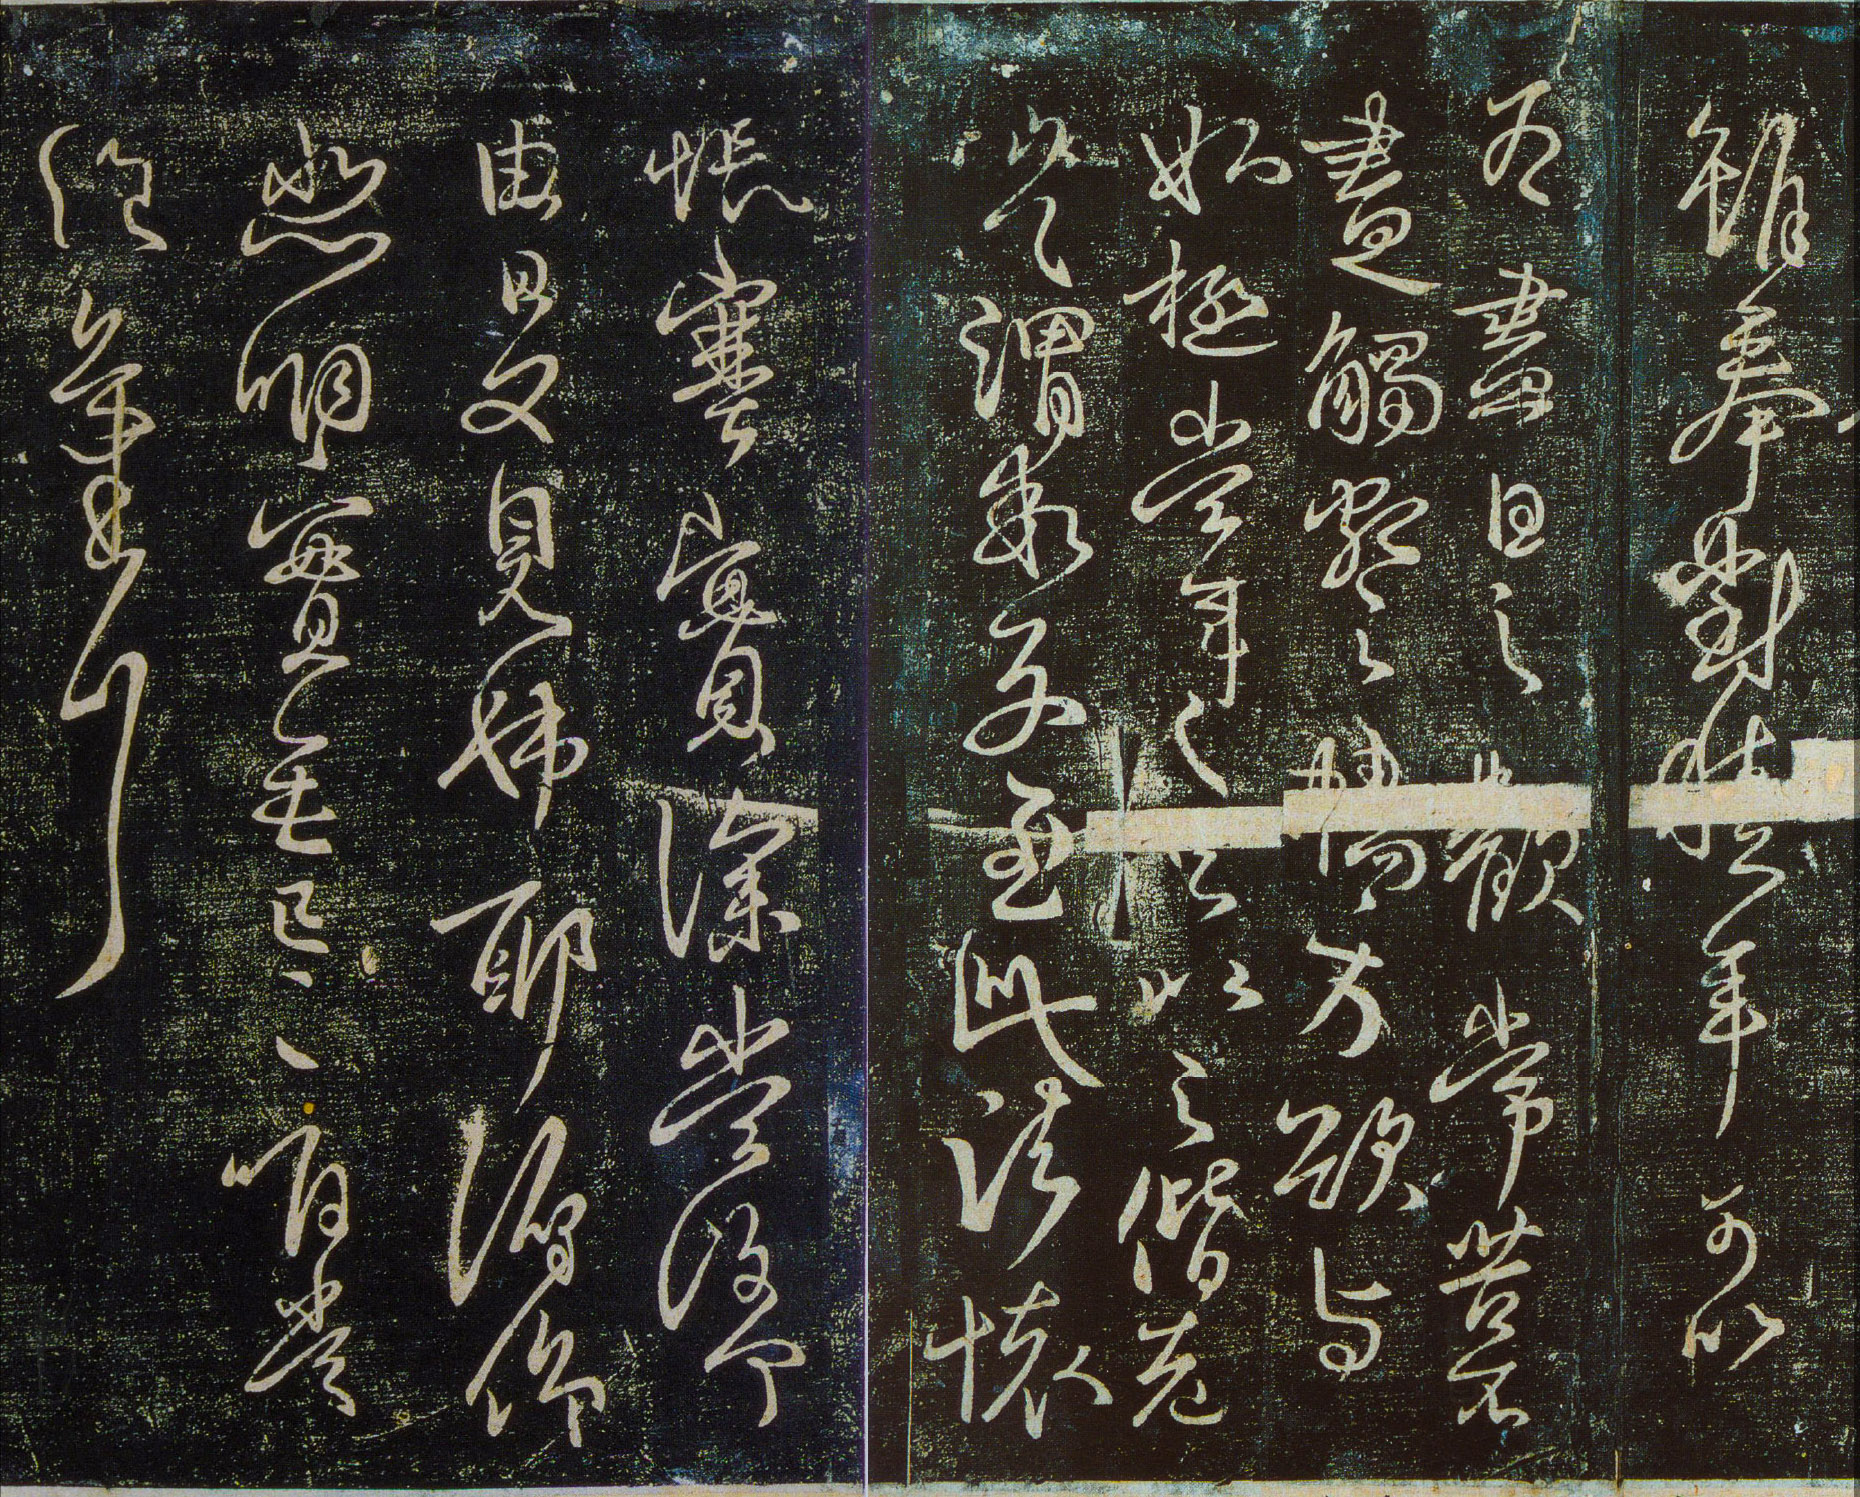 雖奉對積年可以
為盡日之歡常苦不
盡觸類之暢方欲與
姊極當年之足以之偕老
豈謂乖別至此諸懷
悵塞實深當復何
由日夕見姊耶俯仰
悲咽實無已已惟當
絕氣耳